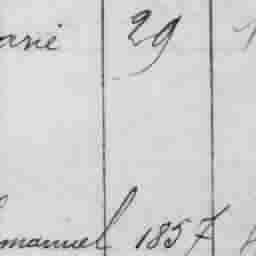 arié 29
manuel 1857